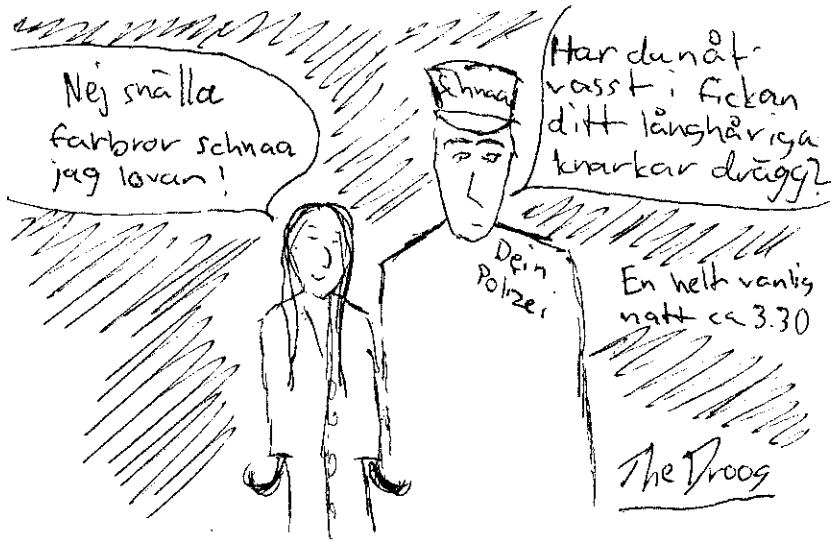 Nej snälla
farbror schnaa
jag lovar!
Schnaa
Har du nåt
vasst i fickan
ditt långhåriga
knarkar drägg?
Dein
Polizei
En helt vanlig
natt ca 3.30
The Droog